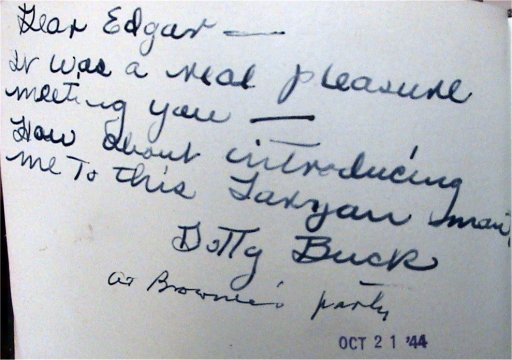 Dear Edgar —
It was a real pleasure
meeting you —
How about introducing
me to this Taryan man,
Dotty Buck
at Brownie's party
OCT 21 '44